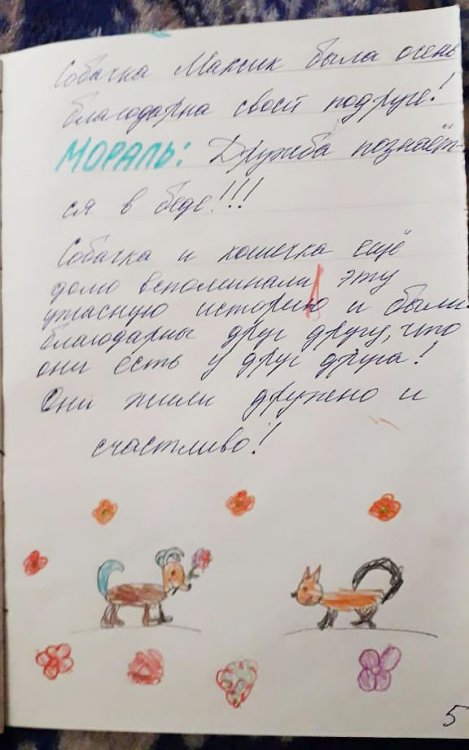 Собачка Максик была очень
благодарна своей подруге!
МОРАЛЬ: Дружба познаёт-
ся в беде!!!
Собачка и кошечка ещё
долго вспоминали эту
ужасную историю и были
благодарны друг другу, что
они есть у друг друга!
Они жили дружно и
счастливо!
5